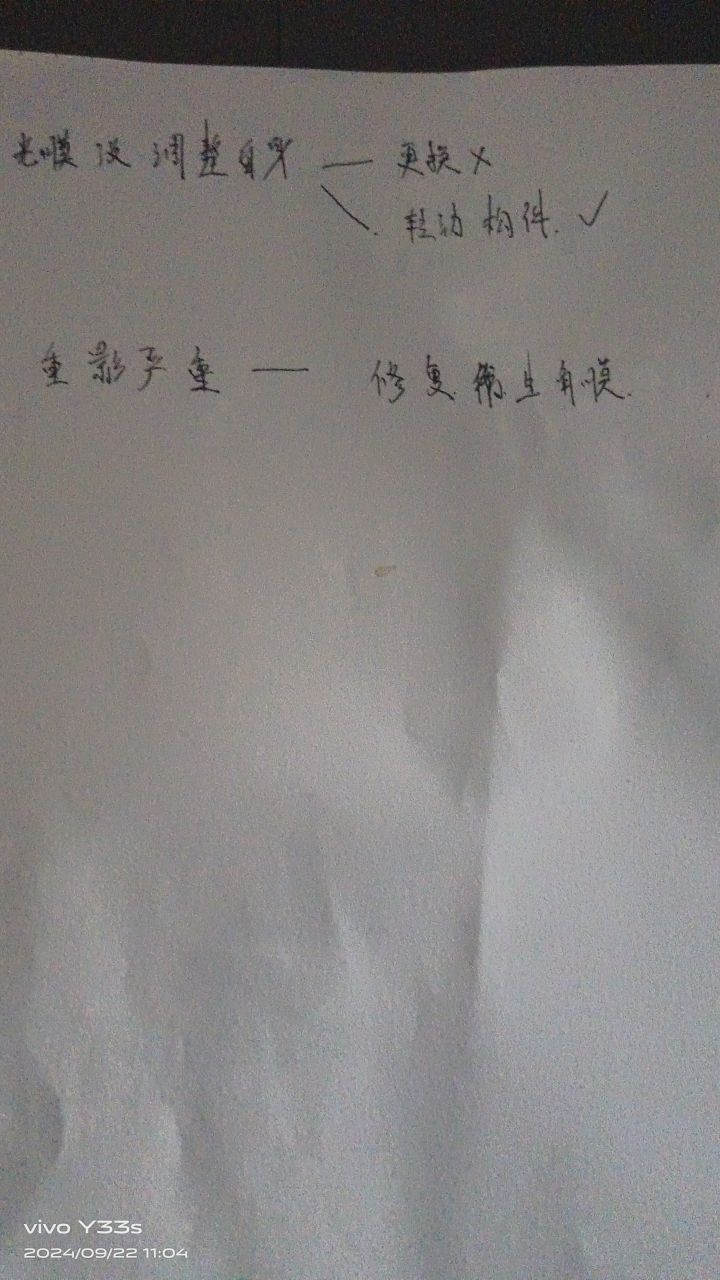 光膜没调整自身 — 更换 ×
轻动构件. ✓
重影严重 — 修复衛生角膜.
vivo Y33s
2024/09/22 11:04